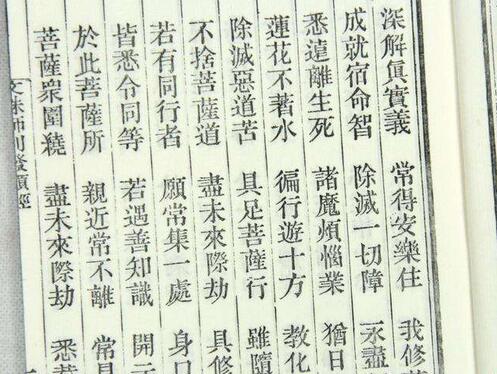 深解眞實義 常得安樂住 我修
成就宿命智 除滅一切障 永盡
悉遠離生死 諸魔煩惱業 猶日
蓮花不著水 徧行遊十方 教化
除滅惡道苦 具足菩薩行 雖隨
不捨菩薩道 盡未來際劫 具修
若有同行者 願常集一處 身口
皆悉令同等 若遇善知識 開
於此菩薩所 親近常不離 常見
菩薩衆圍繞 盡未來際劫 悉
文殊師利發願經